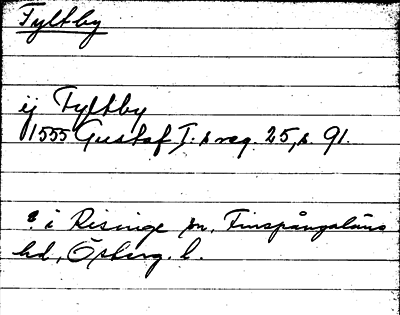 Fyltby
ij Fyltby
1555 Gustaf I:s reg. 25, s. 91.
? i Risinge sn, Finspångaläns
hd, Östergötl. l.